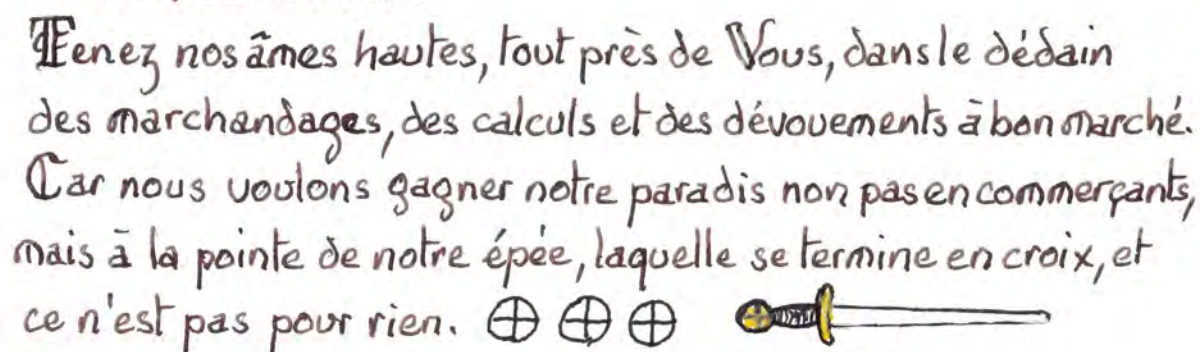 Tenez nos âmes hautes, tout près de Vous, dans le dédain
des marchandages, des calculs et des dévouements à bon marché.
Car nous voulons gagner notre paradis non pas en commerçants,
mais à la pointe de notre épée, laquelle se termine en croix, et
ce n'est pas pour rien.